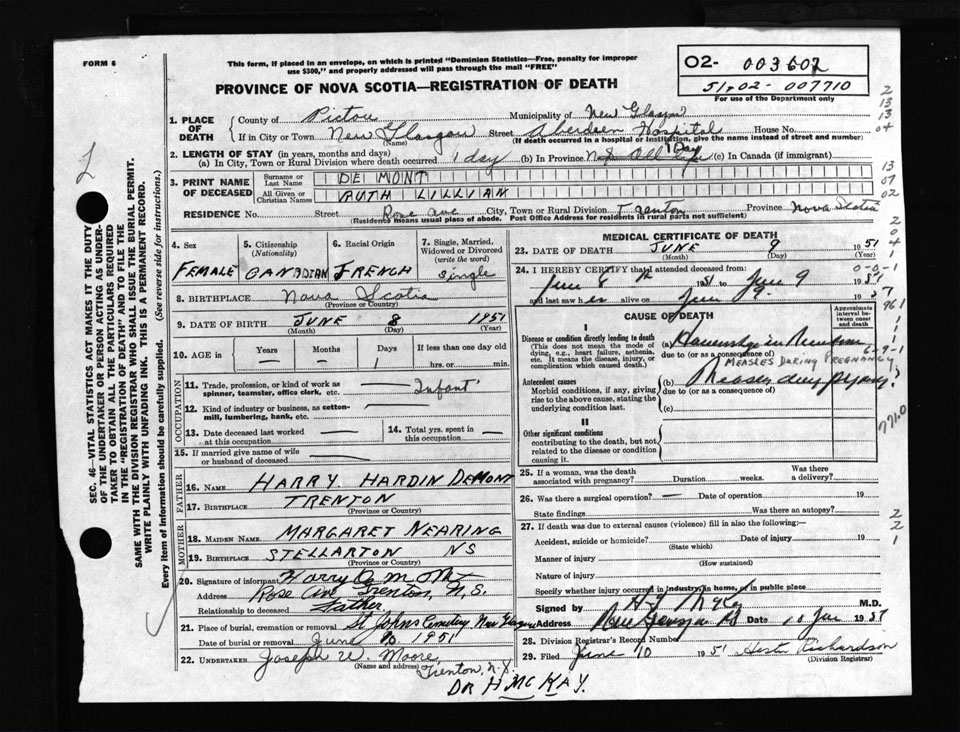 FORM 6
This form, if placed in an envelope, on which is printed "Dominion Statistics—Free, penalty for improper
use $300," and properly addressed will pass through the mail "FREE"
PROVINCE OF NOVA SCOTIA—REGISTRATION OF DEATH
O2- 003602
51-02-007710
For use of the Department only
1. PLACE OF DEATH
County of Pictou Municipality of New Glasgow
If in City or Town New Glasgow Street Aberdeen Hospital House No.
(Name) (If death occurred in a hospital or institution, give the name instead of street and number)
2. LENGTH OF STAY (in years, months and days)
(a) In City, Town or Rural Division where death occurred 1 day (b) In Province All life 1 Day (c) In Canada (if immigrant)
3. PRINT NAME OF DECEASED
Surname or Last Name DE MONT
All Given or Christian Names RUTH LILLIAN
RESIDENCE No. Street Rose ave City, Town or Rural Division Trenton Province Nova Scotia
(Residence means usual place of abode. Post Office Address for residents in rural parts not sufficient)
4. Sex
FEMALE
5. Citizenship (Nationality)
CANADIAN
6. Racial Origin
FRENCH
7. Single, Married, Widowed or Divorced (write the word)
Single
8. BIRTHPLACE Nova Scotia
(Province or Country)
9. DATE OF BIRTH JUNE 8 1951
(Month) (Day) (Year)
10. AGE in Years Months Days If less than one day
hrs. or min.
OCCUPATION
11. Trade, profession, or kind of work as spinner, teamster, office clerk, etc. Infant
12. Kind of industry or business, as cotton-mill, lumbering, bank, etc.
13. Date deceased last worked at this occupation
14. Total yrs. spent in this occupation
15. If married give name of wife or husband of deceased
FATHER
16. NAME HARRY HARDIN DEMONT
17. BIRTHPLACE TRENTON
(Province or Country)
MOTHER
18. MAIDEN NAME MARGARET NEARING
19. BIRTHPLACE STELLARTON NS
(Province or Country)
20. Signature of informant Harry
Address Rose Ave Trenton, N.S.
Relationship to deceased Father
21. Place of burial, cremation or removal St Johns Cemetery New Glasgow
Date of burial or removal June 10 1951
22. UNDERTAKER Joseph W. Moore
(Name and address) Trenton, N.S.
DR H MCKAY.
MEDICAL CERTIFICATE OF DEATH
23. DATE OF DEATH JUNE 9 1951
(Month) (Day) (Year)
24. I HEREBY CERTIFY that I attended deceased from
June 8 1951 to June 9 1951
and last saw her alive on June 9 19
CAUSE OF DEATH
Approximate interval between onset and death
I
Disease or condition directly leading to death
(This does not mean the mode of dying, e.g., heart failure, asthenia, etc. It means the disease, injury, or complication which caused death.)
(a)
due to (or as a consequence of)
MEASLES DURING PREGNANCY
Antecedent causes
Morbid conditions, if any, giving rise to the above cause, stating the underlying condition last.
(b) Measles
due to (or as a consequence of)
(c)
II
Other significant conditions
contributing to the death, but not related to the disease or condition causing it.
25. If a woman, was the death associated with pregnancy? Duration weeks. Was there a delivery?
26. Was there a surgical operation? Date of operation 19
State findings Was there an autopsy?
27. If death was due to external causes (violence) fill in also the following:—
Accident, suicide or homicide? Date of injury 19
(State which)
Manner of injury
(How sustained)
Nature of injury
Specify whether injury occurred in industry, in home, or in public place
Signed by M.D.
Address Date 10 June 19
28. Division Registrar's Record Number
29. Filed June 10 1951 Richardson
(Division Registrar)
SEC. 46—VITAL STATISTICS ACT MAKES IT THE DUTY
OF THE UNDERTAKER OR PERSON ACTING AS UNDER-
TAKER TO OBTAIN ALL THE PARTICULARS REQUIRED
IN THE "REGISTRATION OF DEATH" AND TO FILE THE
SAME WITH THE DIVISION REGISTRAR WHO SHALL ISSUE THE BURIAL PERMIT.
WRITE PLAINLY WITH UNFADING INK. THIS IS A PERMANENT RECORD.
Every item of information should be carefully supplied. (See reverse side for instructions.)
2
13
13
04
13
07
02
2
0
4
1
0-0-1
961
6-9-1
771.0
2
2
1